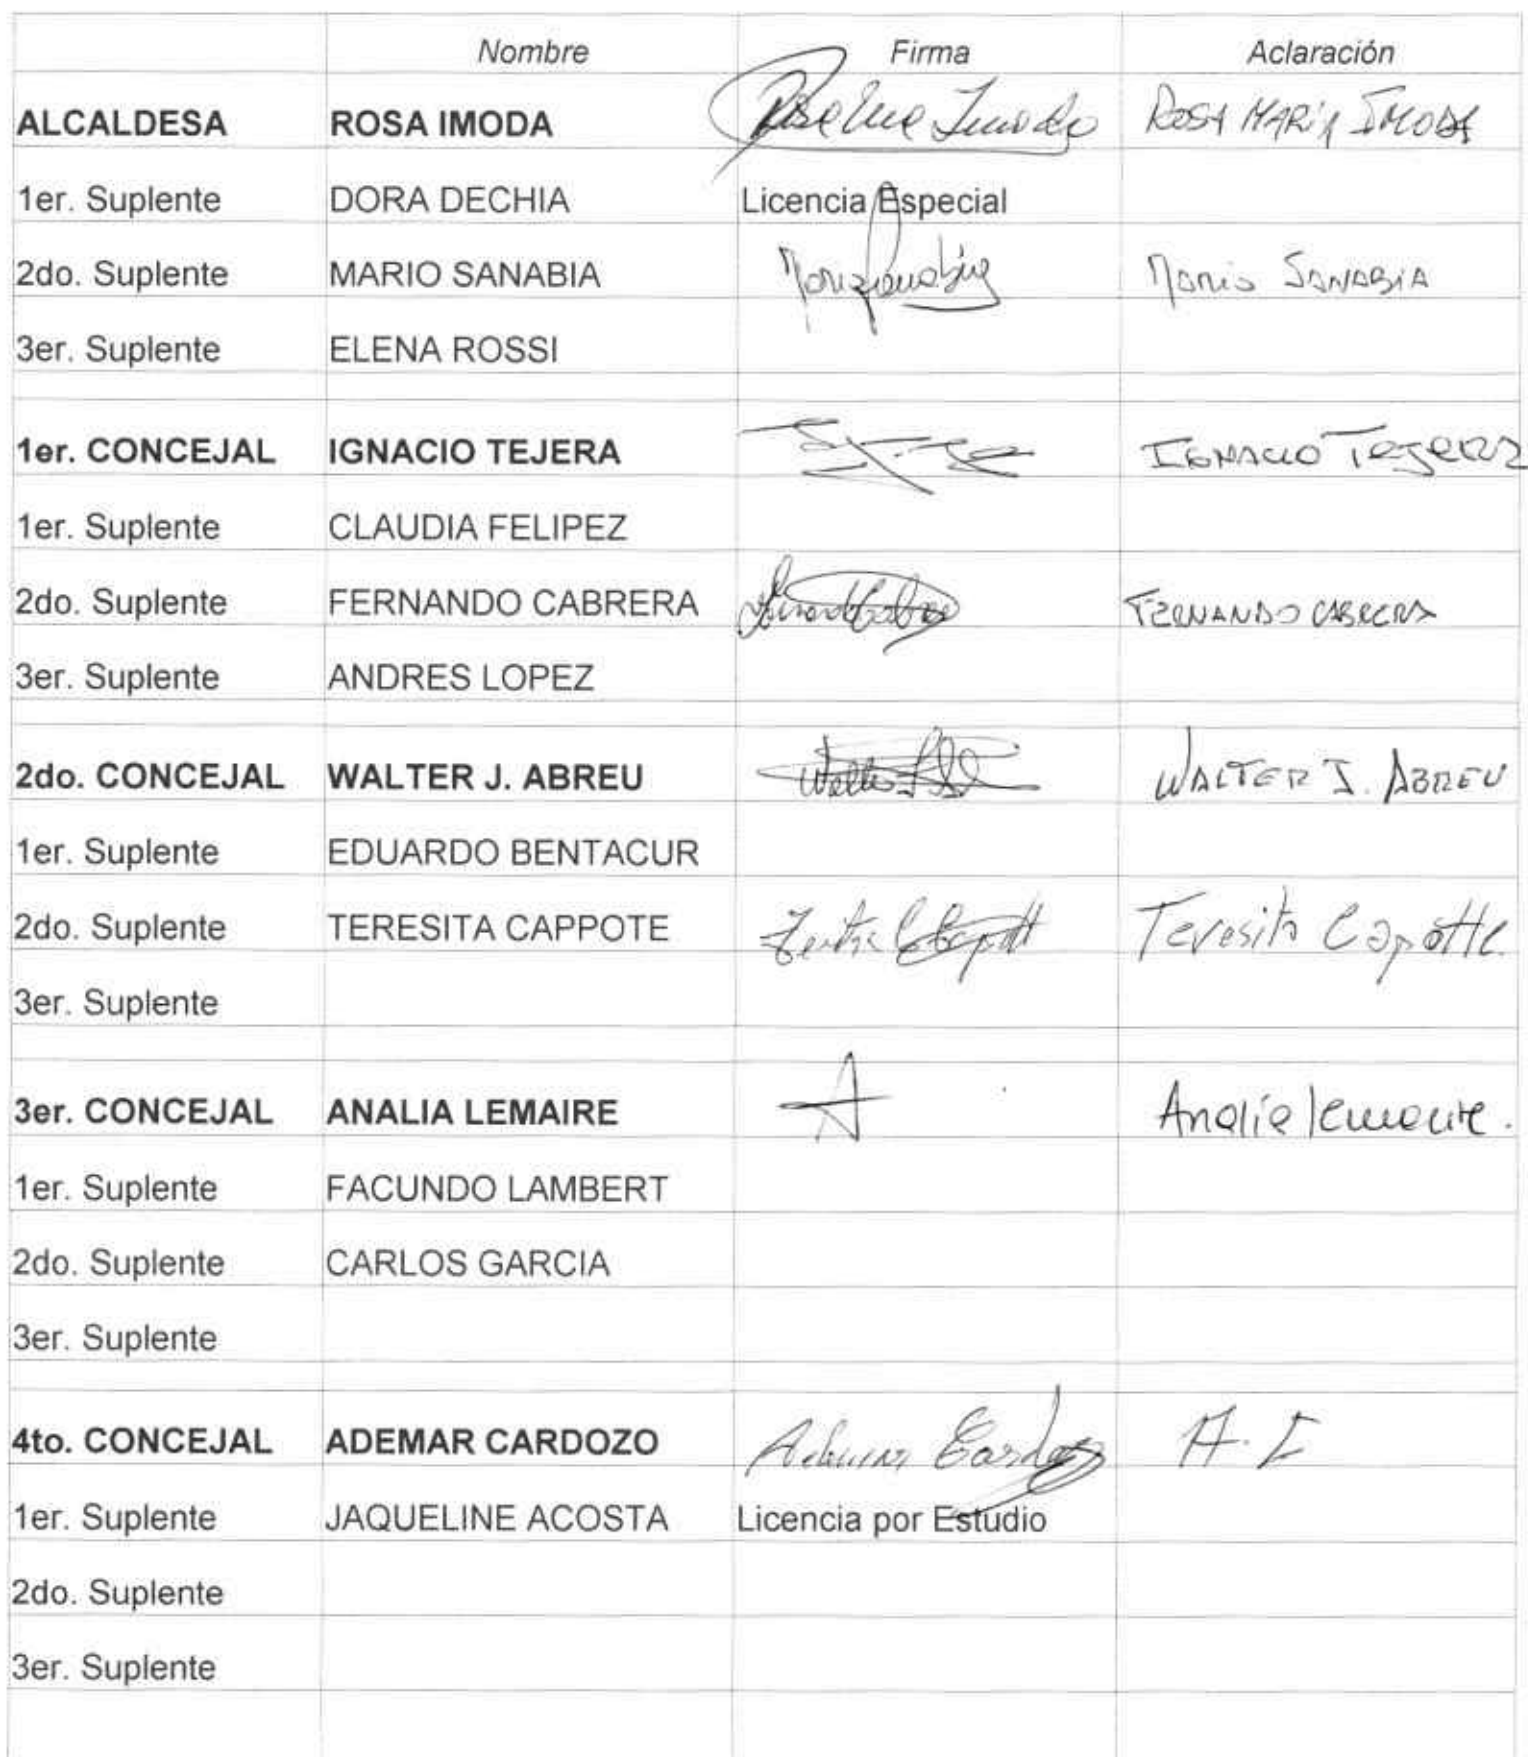 Nombre Firma Aclaración
ALCALDESA ROSA IMODA Rosa Imoda ROSA MARÍA IMODA
1er. Suplente DORA DECHIA Licencia Especial
2do. Suplente MARIO SANABIA Mario Sanabia Mario SANABIA
3er. Suplente ELENA ROSSI
1er. CONCEJAL IGNACIO TEJERA IGNACIO TEJERA
1er. Suplente CLAUDIA FELIPEZ
2do. Suplente FERNANDO CABRERA FERNANDO CABRERA
3er. Suplente ANDRES LOPEZ
2do. CONCEJAL WALTER J. ABREU Walter WALTER J. ABREU
1er. Suplente EDUARDO BENTACUR
2do. Suplente TERESITA CAPPOTE Teresita Capotte
3er. Suplente
3er. CONCEJAL ANALIA LEMAIRE A Analía lemaire.
1er. Suplente FACUNDO LAMBERT
2do. Suplente CARLOS GARCIA
3er. Suplente
4to. CONCEJAL ADEMAR CARDOZO Ademar Cardozo A. C
1er. Suplente JAQUELINE ACOSTA Licencia por Estudio
2do. Suplente
3er. Suplente